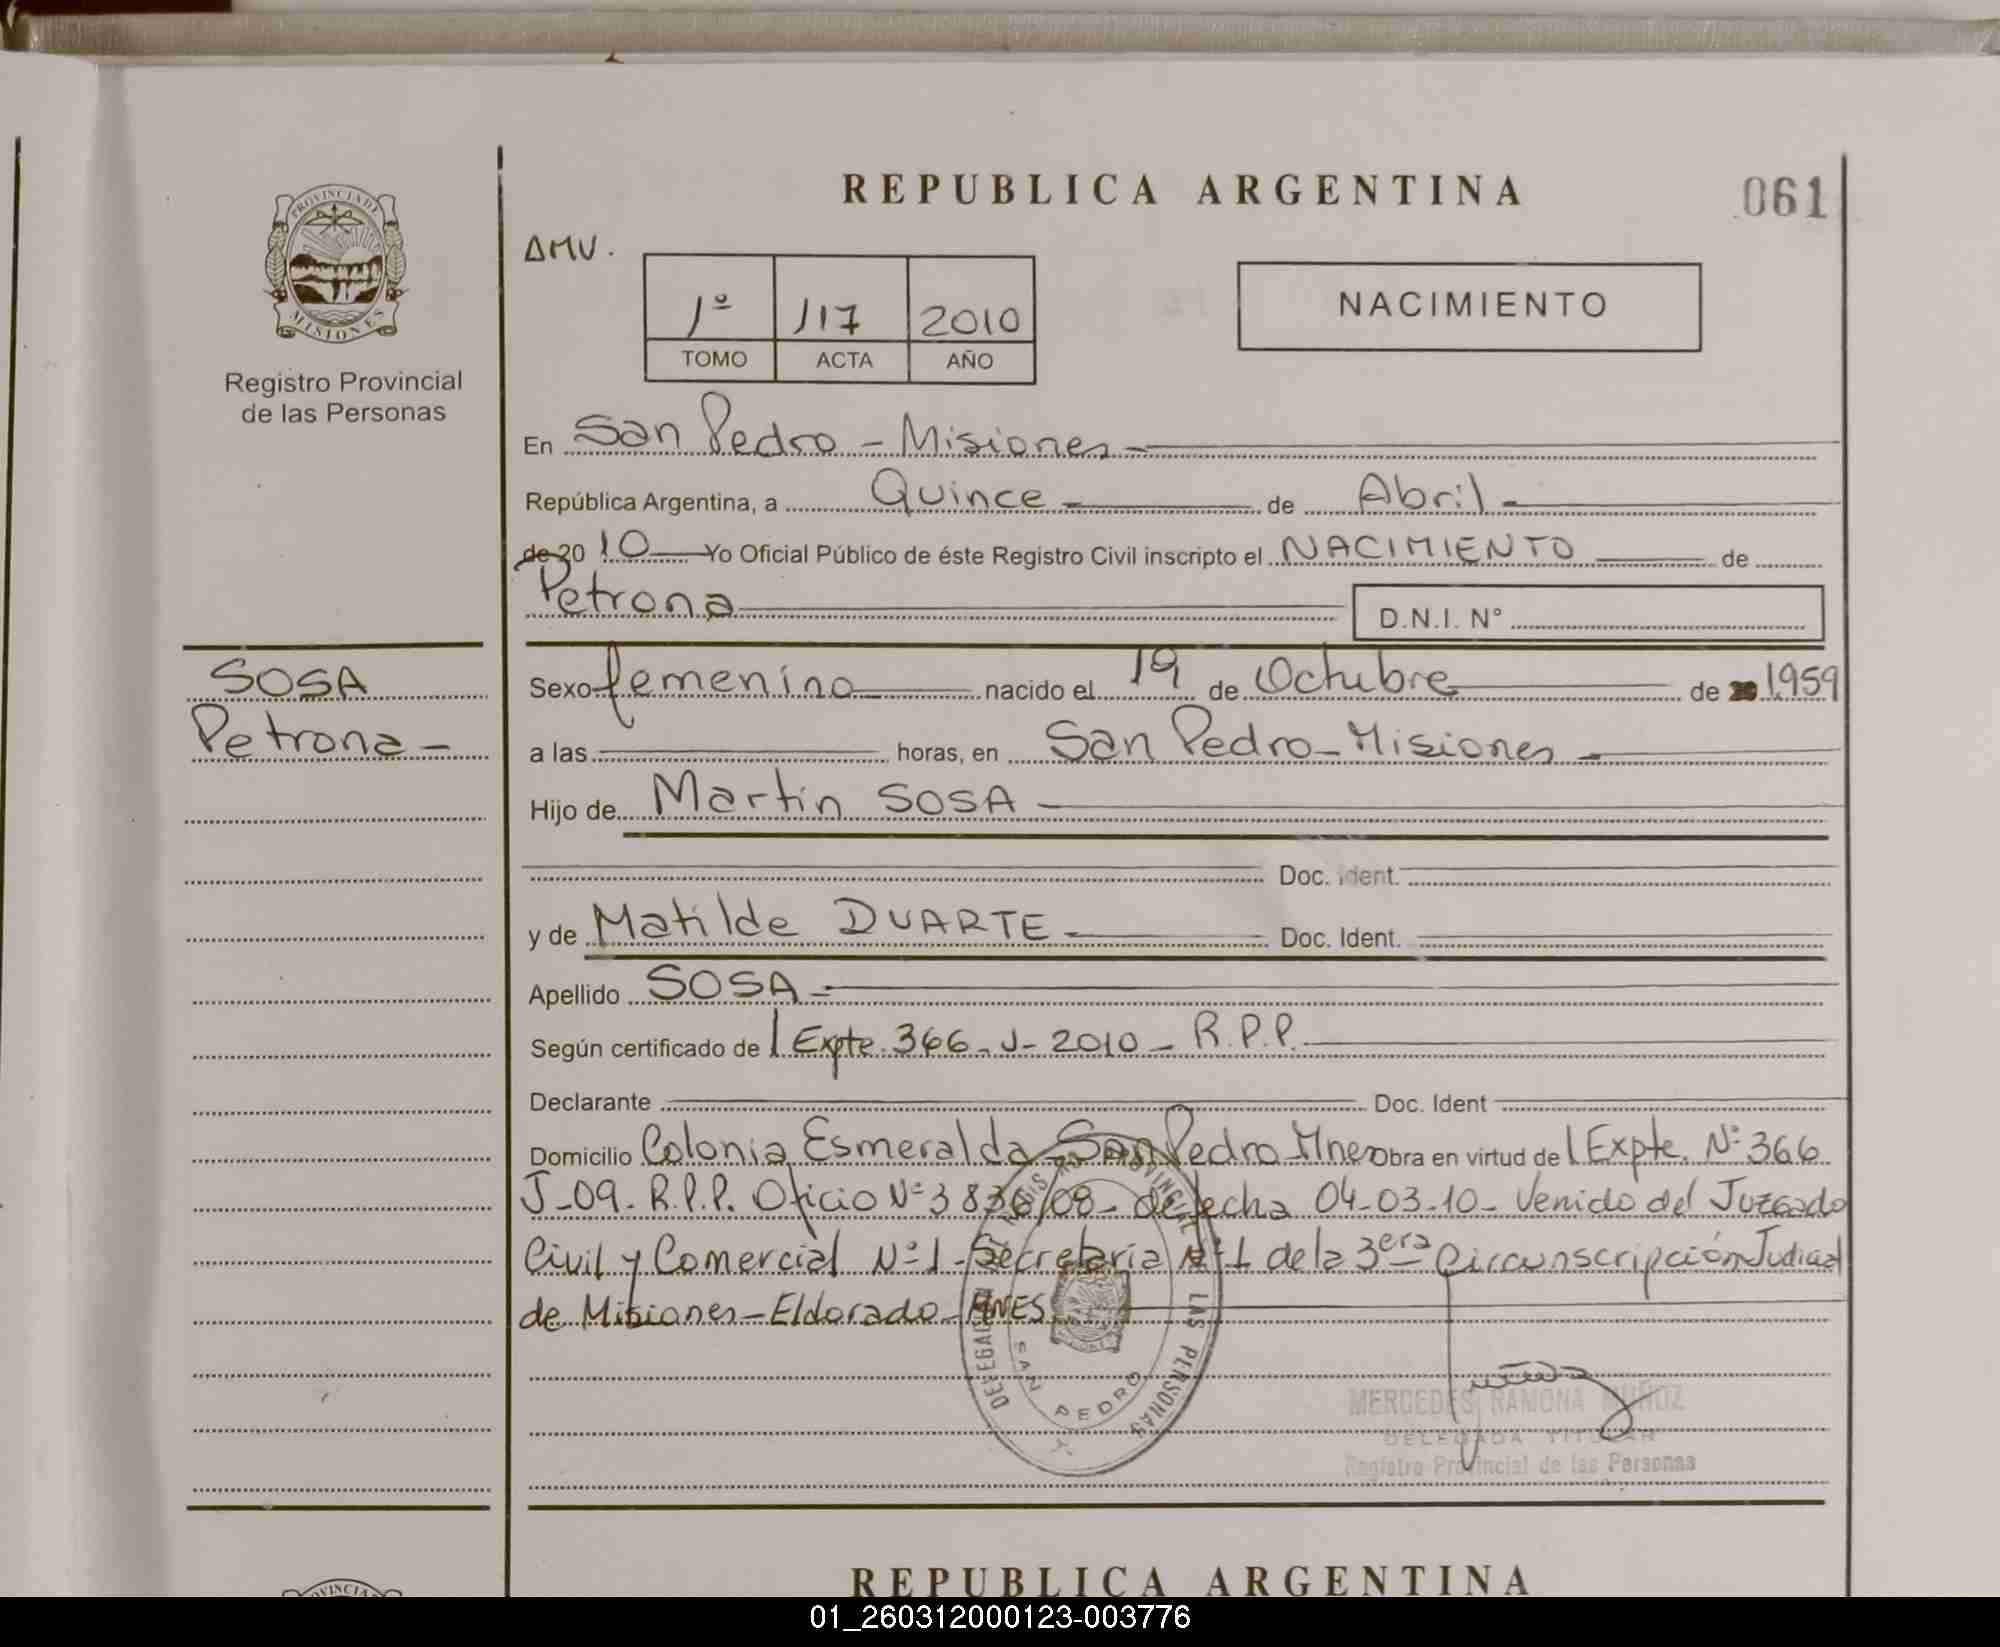 REPUBLICA ARGENTINA
061
PROVINCIA DE
MISIONES
Registro Provincial
de las Personas
AMV.
1º 117 2010
TOMO ACTA AÑO
NACIMIENTO
En San Pedro - Misiones -
República Argentina, a Quince - de Abril -
de 20 10 Yo Oficial Público de éste Registro Civil inscripto el NACIMIENTO de
Petrona
D.N.I. Nº
SOSA
Petrona -
Sexo femenino nacido el 19 de Octubre de 1959
a las horas, en San Pedro - Misiones -
Hijo de Martin SOSA -
Doc. Ident.
y de Matilde DUARTE - Doc. Ident.
Apellido SOSA -
Según certificado de Expte. 366 - J - 2010 - R.P.P.
Declarante Doc. Ident
Domicilio Colonia Esmeralda - San Pedro Mnes Obra en virtud de Expte. Nº 366
J-09. R.P.P. Oficio Nº 3836/08 - de fecha 04-03-10 - Venido del Juzgado
Civil y Comercial Nº 1 - Secretaria Nº 1 de la 3era Circunscripción Judicial
de Misiones - Eldorado - MNES
SAN PEDRO
MERCEDES RAMONA MUÑOZ
DELEGADA TITULAR
Registro Provincial de las Personas
REPUBLICA ARGENTINA
01_260312000123-003776